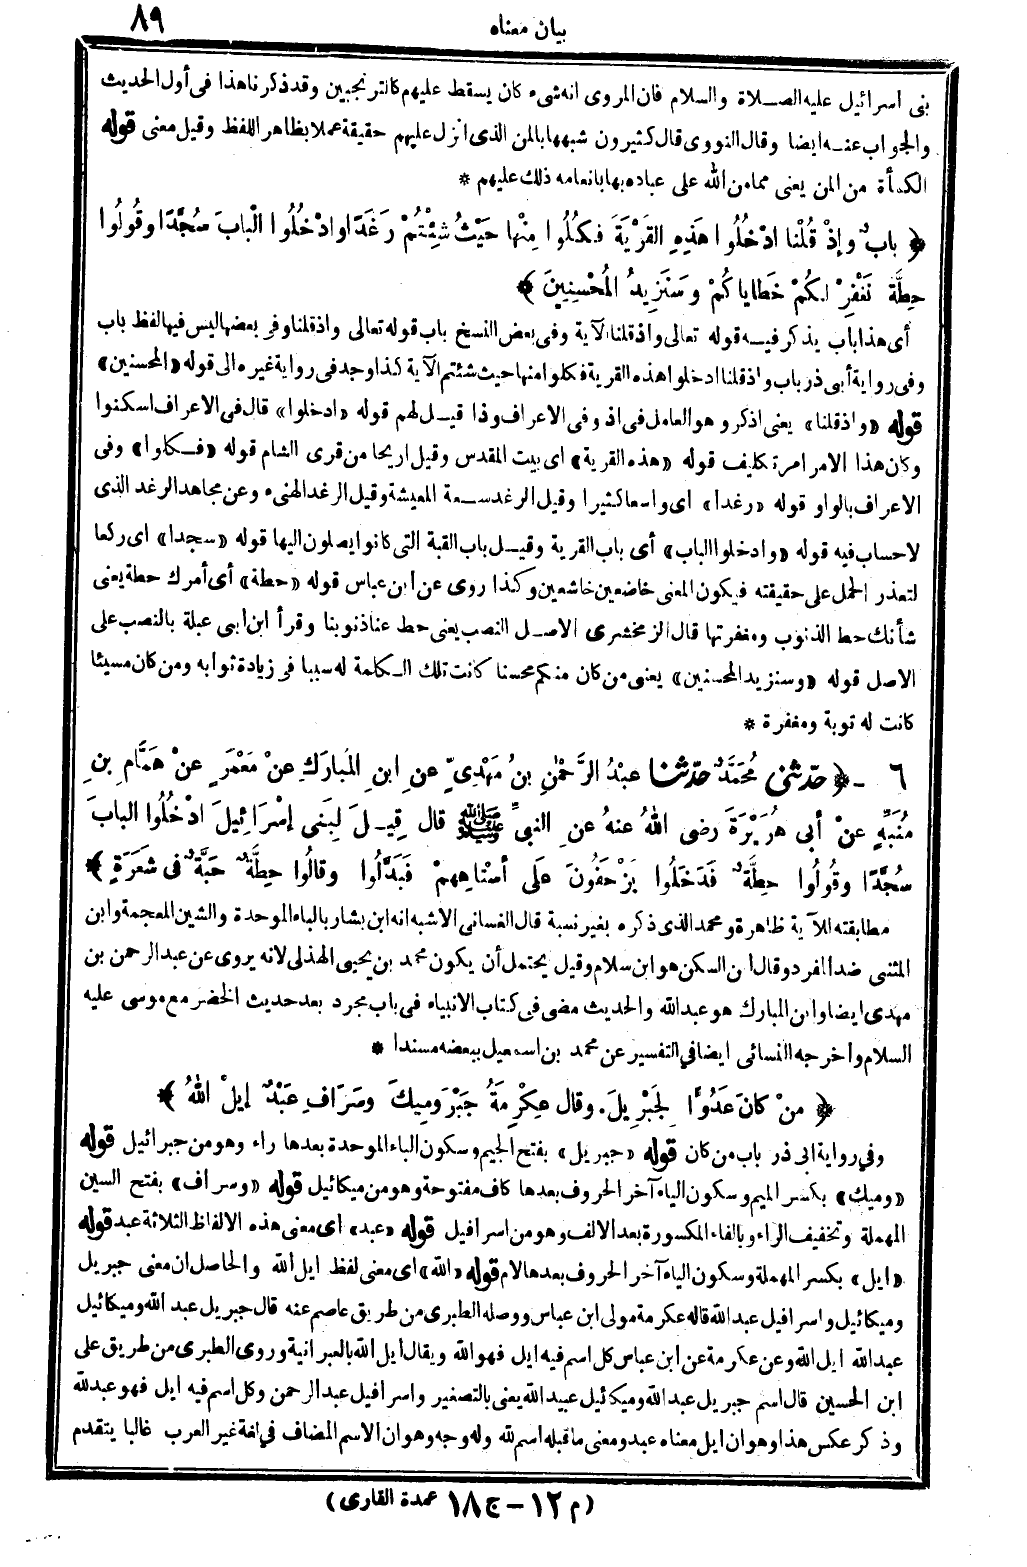 بيان معناه ٨٩
بنى اسرائيل عليه الصلاة والسلام فان المروى انه شىء كان يسقط عليهم كالترنجبين وقد ذكرنا هذا فى أول الحديث
والجواب عنه ايضا وقال النووى قال كثيرون شبهها بالمن الذى انزل عليهم حقيقة عملا بظاهر اللفظ وقيل معنى قوله
الكمأة من المن يعنى مما من الله على عباده بها بانعامه ذلك عليهم *
﴿ بابٌ وإِذْ قُلْنا ادْخُلُوا هٰذِهِ القَرْيَةَ فَكُلُوا مِنْها حَيْثُ شِئْتُمْ رَغَدًا وادْخُلُوا الْبابَ سُجَّدًا وقُولُوا
حِطَّةٌ نَغْفِرْ لَكُمْ خَطاياكُمْ وسَنَزِيدُ المُحْسِنِينَ ﴾
أى هذا باب يذكر فيه قوله تعالى واذ قلنا الآية وفى بعض النسخ باب قوله تعالى واذ قلنا وفى بعضها ليس فيها لفظ باب
وفى رواية أبى ذر باب واذ قلنا ادخلوا هذه القرية فكلوا منها حيث شئتم الآية كذا وجد فى رواية غيره الى قوله «المحسنين»
قوله «واذ قلنا» يعنى اذكر وهو العامل فى اذ وفى الاعراف وذا قيل لهم قوله «ادخلوا» قال فى الاعراف اسكنوا
وكان هذا الامر امر تكليف قوله «هذه القرية» اى بيت المقدس وقيل اريحا من قرى الشام قوله «فكلوا» وفى
الاعراف بالواو قوله «رغدا» اى واسعا كثيرا وقيل الرغد سعة المعيشة وقيل الرغد الهنىء وعن مجاهد الرغد الذى
لا حساب فيه قوله «وادخلوا الباب» أى باب القرية وقيل باب القبة التى كانوا يصلون اليها قوله «سجدا» اى ركعا
لتعذر الحمل على حقيقته فيكون المعنى خاضعين خاشعين وكذا روى عن ابن عباس قوله «حطة» أى أمرك حطة يعنى
شأنك حط الذنوب ومغفرتها قال الزمخشرى الاصل النصب يعنى حط عنا ذنوبنا وقرأ ابن ابى عبلة بالنصب على
الاصل قوله «وسنزيد المحسنين» يعنى من كان منكم محسنا كانت تلك الكلمة له سببا فى زيادة ثوابه ومن كان مسيئا
كانت له توبة ومغفرة *
٦ - ﴿ حدّثنى مُحَمَّدٌ حدّثنا عبْدُ الرَّحْمٰنِ بنُ مَهْدِىٍّ عنِ ابنِ المُبارَكِ عنْ مَعْمَرٍ عنْ هَمَّامِ بنِ
مُنَبِّهٍ عنْ أبى هُرَيْرَةَ رضى اللهُ عنهُ عنِ النبىِّ ﷺ قال قِيلَ لِبَنِى إسْرَائِيلَ ادْخُلُوا البابَ
سُجَّدًا وقُولُوا حِطَّةٌ فَدَخَلُوا يَزْحَفُونَ عَلَى أسْتاهِهِمْ فَبَدَّلُوا وقالُوا حِطَّةٌ حَبَّةٌ فى شَعَرَةٍ ﴾
مطابقته للآية ظاهرة ومحمد الذى ذكره بغير نسبة قال الغسانى الاشبه انه ابن بشار بالباء الموحدة والشين المعجمة وابن
المثنى ضد المفرد وقال ابن السكن هو ابن سلام وقيل يحتمل أن يكون محمد بن يحيى الهذلى لانه يروى عن عبد الرحمن بن
مهدى ايضا وابن المبارك هو عبد الله والحديث مضى فى كتاب الانبياء فى باب مجرد بعد حديث الخضر مع موسى عليه
السلام وأخرجه النسائى ايضا في التفسير عن محمد بن اسمعيل ببعضه مسندا *
﴿ منْ كانَ عَدُوًّا لِجَبْرِيلَ. وقال عِكْرِمَةُ جَبْرَ ومِيكَ وسَرَافِ عَبْدٌ إيلْ اللهُ ﴾
وفي رواية ابى ذر باب من كان قوله «جبريل» بفتح الجيم وسكون الباء الموحدة بعدها راء وهو من جبرائيل قوله
«وميك» بكسر الميم وسكون الياء آخر الحروف بعدها كاف مفتوحة وهو من ميكائيل قوله «وسراف» بفتح السين
المهملة وتخفيف الراء وبالفاء المكسورة بعد الالف وهو من اسرافيل قوله «عبد» اى معنى هذه الالفاظ الثلاثة عبد قوله
«ايل» بكسر المهملة وسكون الياء آخر الحروف بعدها لام قوله «الله» اى معنى لفظ ايل الله والحاصل ان معنى جبريل
وميكائيل واسرافيل عبد الله قاله عكرمة مولى ابن عباس ووصله الطبرى من طريق عاصم عنه قال جبريل عبد الله وميكائيل
عبد الله ايل الله وعن عكرمة عن ابن عباس كل اسم فيه ايل فهو الله ويقال أيل الله بالعبرانية وروى الطبرى من طريق على
ابن الحسين قال اسم جبريل عبد الله وميكائيل عبيد الله يعنى بالتصغير واسرافيل عبد الرحمن وكل اسم فيه ايل فهو عبد لله
وذكر عكس هذا وهو ان ايل معناه عبد ومعنى ما قبله اسم لله وله وجه وهو ان الاسم المضاف في لغة غير العرب غالبا يتقدم
(م ١٢ - ج ١٨ عمدة القارى)